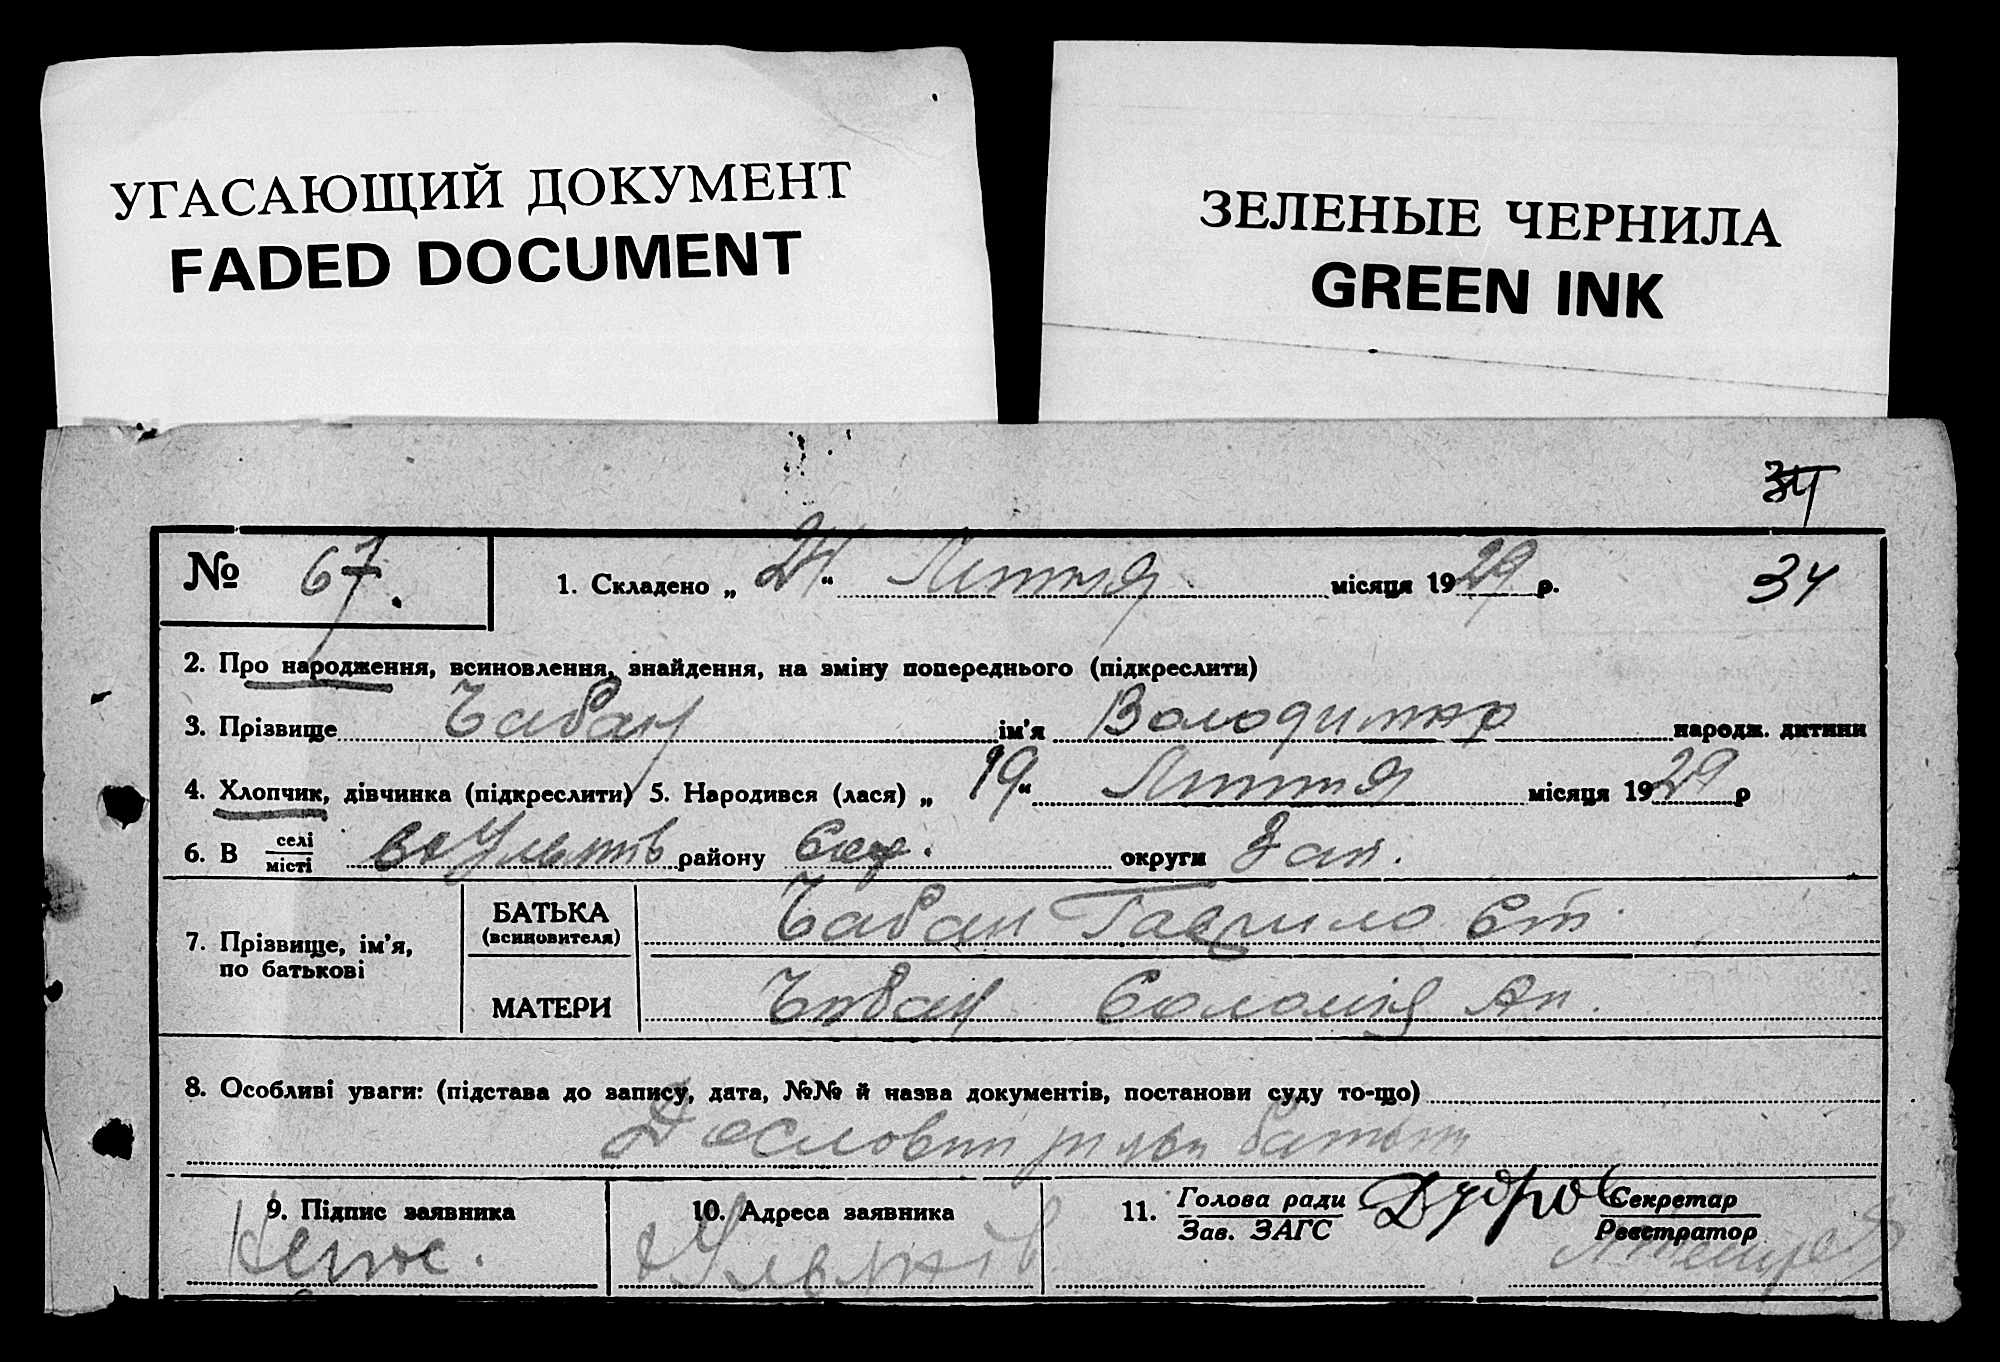 УГАСАЮЩИЙ ДОКУМЕНТ
FADED DOCUMENT
ЗЕЛЕНЫЕ ЧЕРНИЛА
GREEN INK
34
№ 67. 1. Складено „ 24 “ Липня місяця 1929 р. 34
2. Про народження, всиновлення, знайдення, на зміну попереднього (підкреслити)
3. Прізвище Чабан ім'я Володимир народж. дитини
4. Хлопчик, дівчинка (підкреслити) 5. Народився (лася) „ 19 “ Липня місяця 1929 р
6. В селі району округи Зап.
місті
7. Прізвище, ім'я, по батькові
БАТЬКА Чабан Гаврило Ст.
(всиновителя)
МАТЕРИ Чабан Соломія Ан.
8. Особливі уваги: (підстава до запису, дата, №№ й назва документів, постанови суду то-що)
9. Підпис заявника
10. Адреса заявника
11. Голова ради Секретар
Зав. ЗАГС Реєстратор